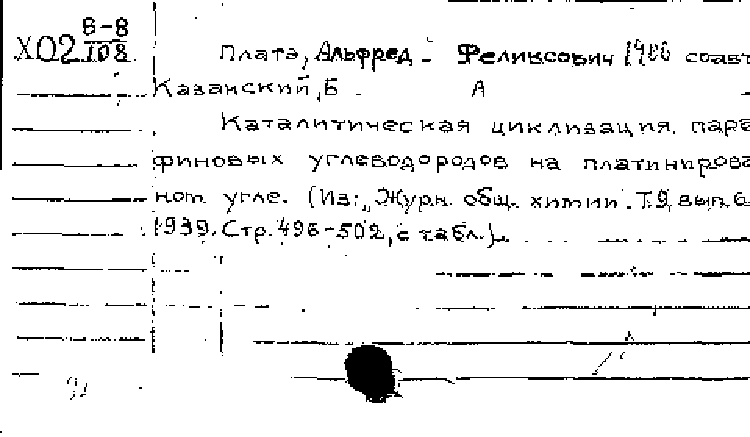 Х02 В-8
108
Платэ, Альфред - Феликсович 1906 соавт
Казанский, Б. А
Каталитическая циклизация пара
финовых углеводородов на платиниров
ном угле. (Из: „Журн. общ. химии". Т.9, вып. 6
1939. Стр. 496-502, с табл.).